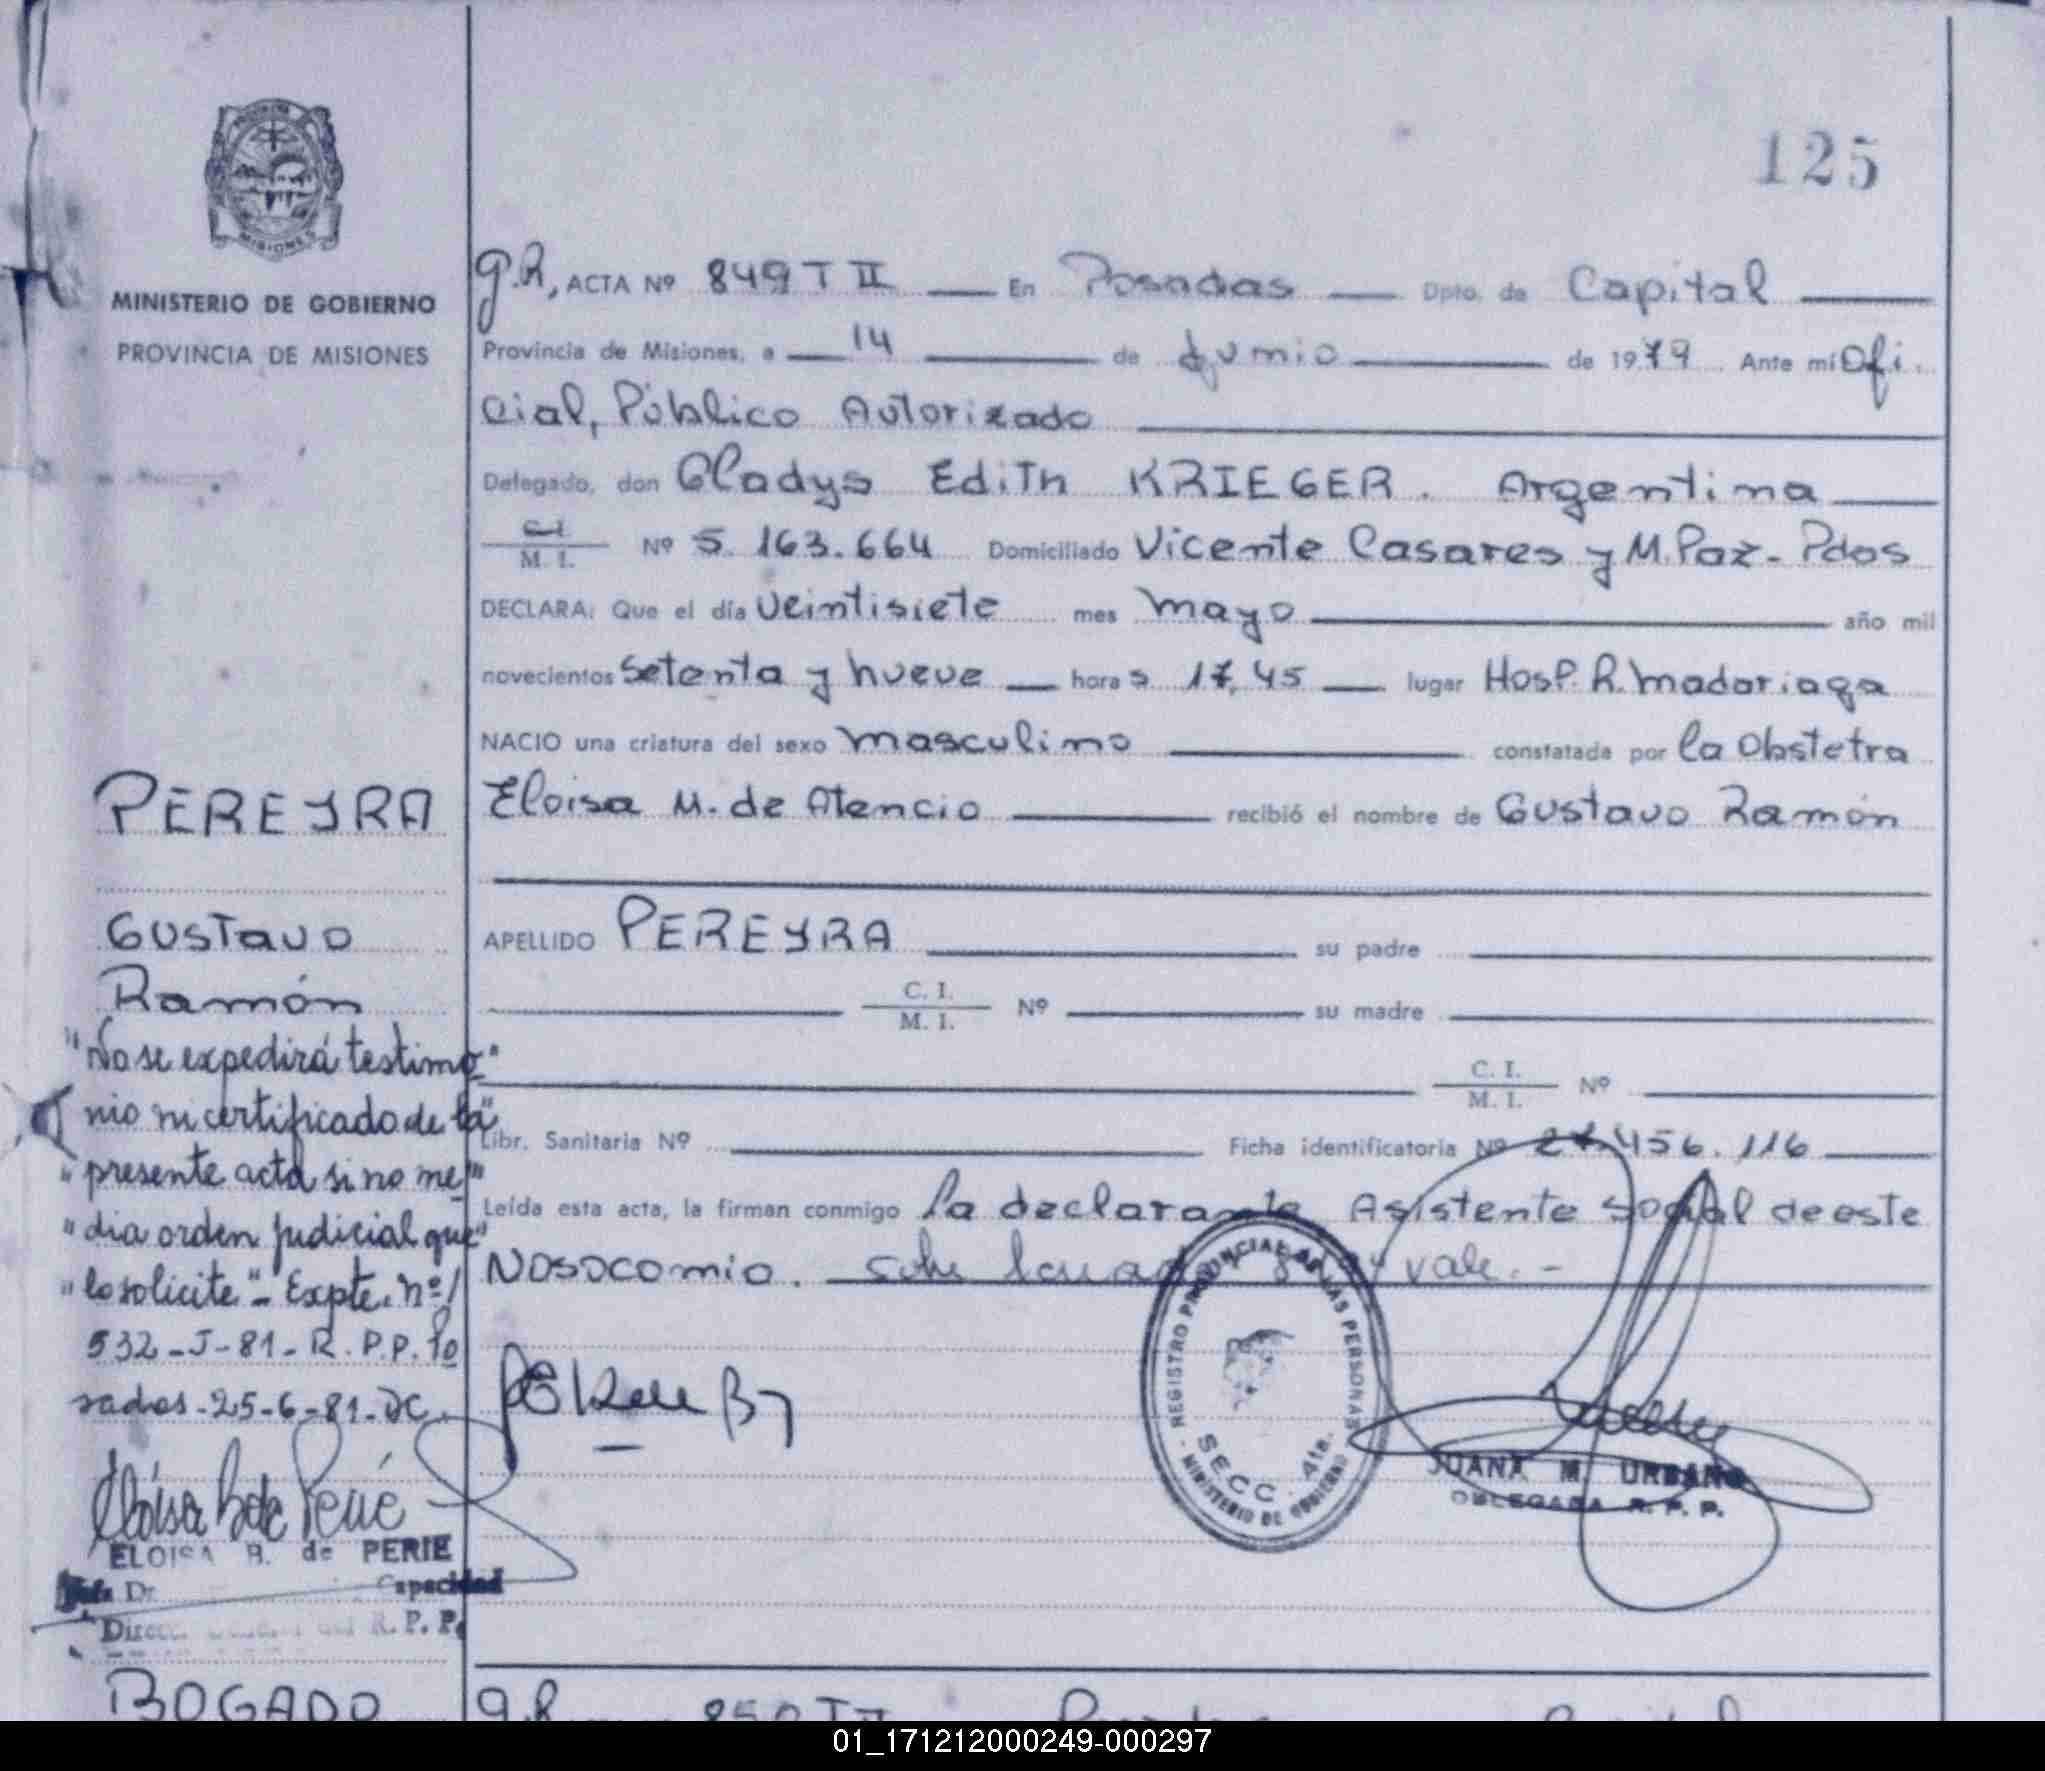 125
MISIONES
MINISTERIO DE GOBIERNO
PROVINCIA DE MISIONES
PEREYRA
GUSTAVO
Ramón
"No se expedirá testimo"
nio ni certificado de la"
"presente acta si no me"
"dia orden judicial que"
"lo solicite"- Expte. nº/
532-J-81-R.P.P. Po
sadas-25-6-81-
ELOISA B. de PERIE
Capacidad
R. P. P.
BOGADO
g.R, ACTA Nº 849 T II En Posadas Dpto. de Capital
Provincia de Misiones, a 14 de Junio de 1979 Ante mí Ofi.
cial, Público Autorizado
Delegado, don Gladys Edith KRIEGER. Argentina
C.I. M. I. Nº 5.163.664 Domiciliado Vicente Casares y M. Paz- Pdas
DECLARA: Que el día veintisiete mes mayo año mil
novecientos setenta y nueve horas 17,45 lugar Hosp. R. Madariaga
NACIO una criatura del sexo masculino constatada por la Obstetra
Eloisa M. de Atencio recibió el nombre de Gustavo Ramón
APELLIDO PEREYRA su padre
C. I. M. I. Nº su madre
C. I. M. I. Nº
Libr. Sanitaria Nº Ficha identificatoria Nº 27.456.116
Leída esta acta, la firman conmigo la declarante Asistente Social de este
Nosocomio. vale.-
REGISTRO PROVINCIAL DE LAS PERSONAS
SECC. 4ta.
MINISTERIO DE GOBIERNO
JUANA M. URBANO
DELEGADA R. P. P.
g.R 850 T II Capital
01_171212000249-000297